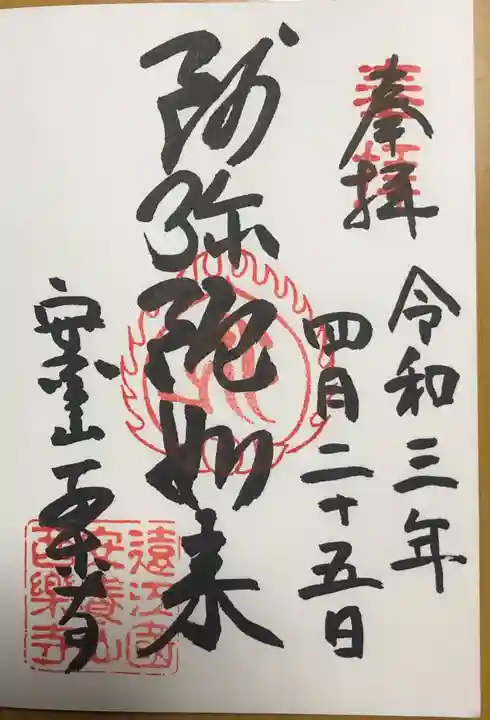 奉拝
奉拝
令和三年
四月二十五日
阿弥陀如来
安養山 西楽寺
遠江國
安養山
西樂寺